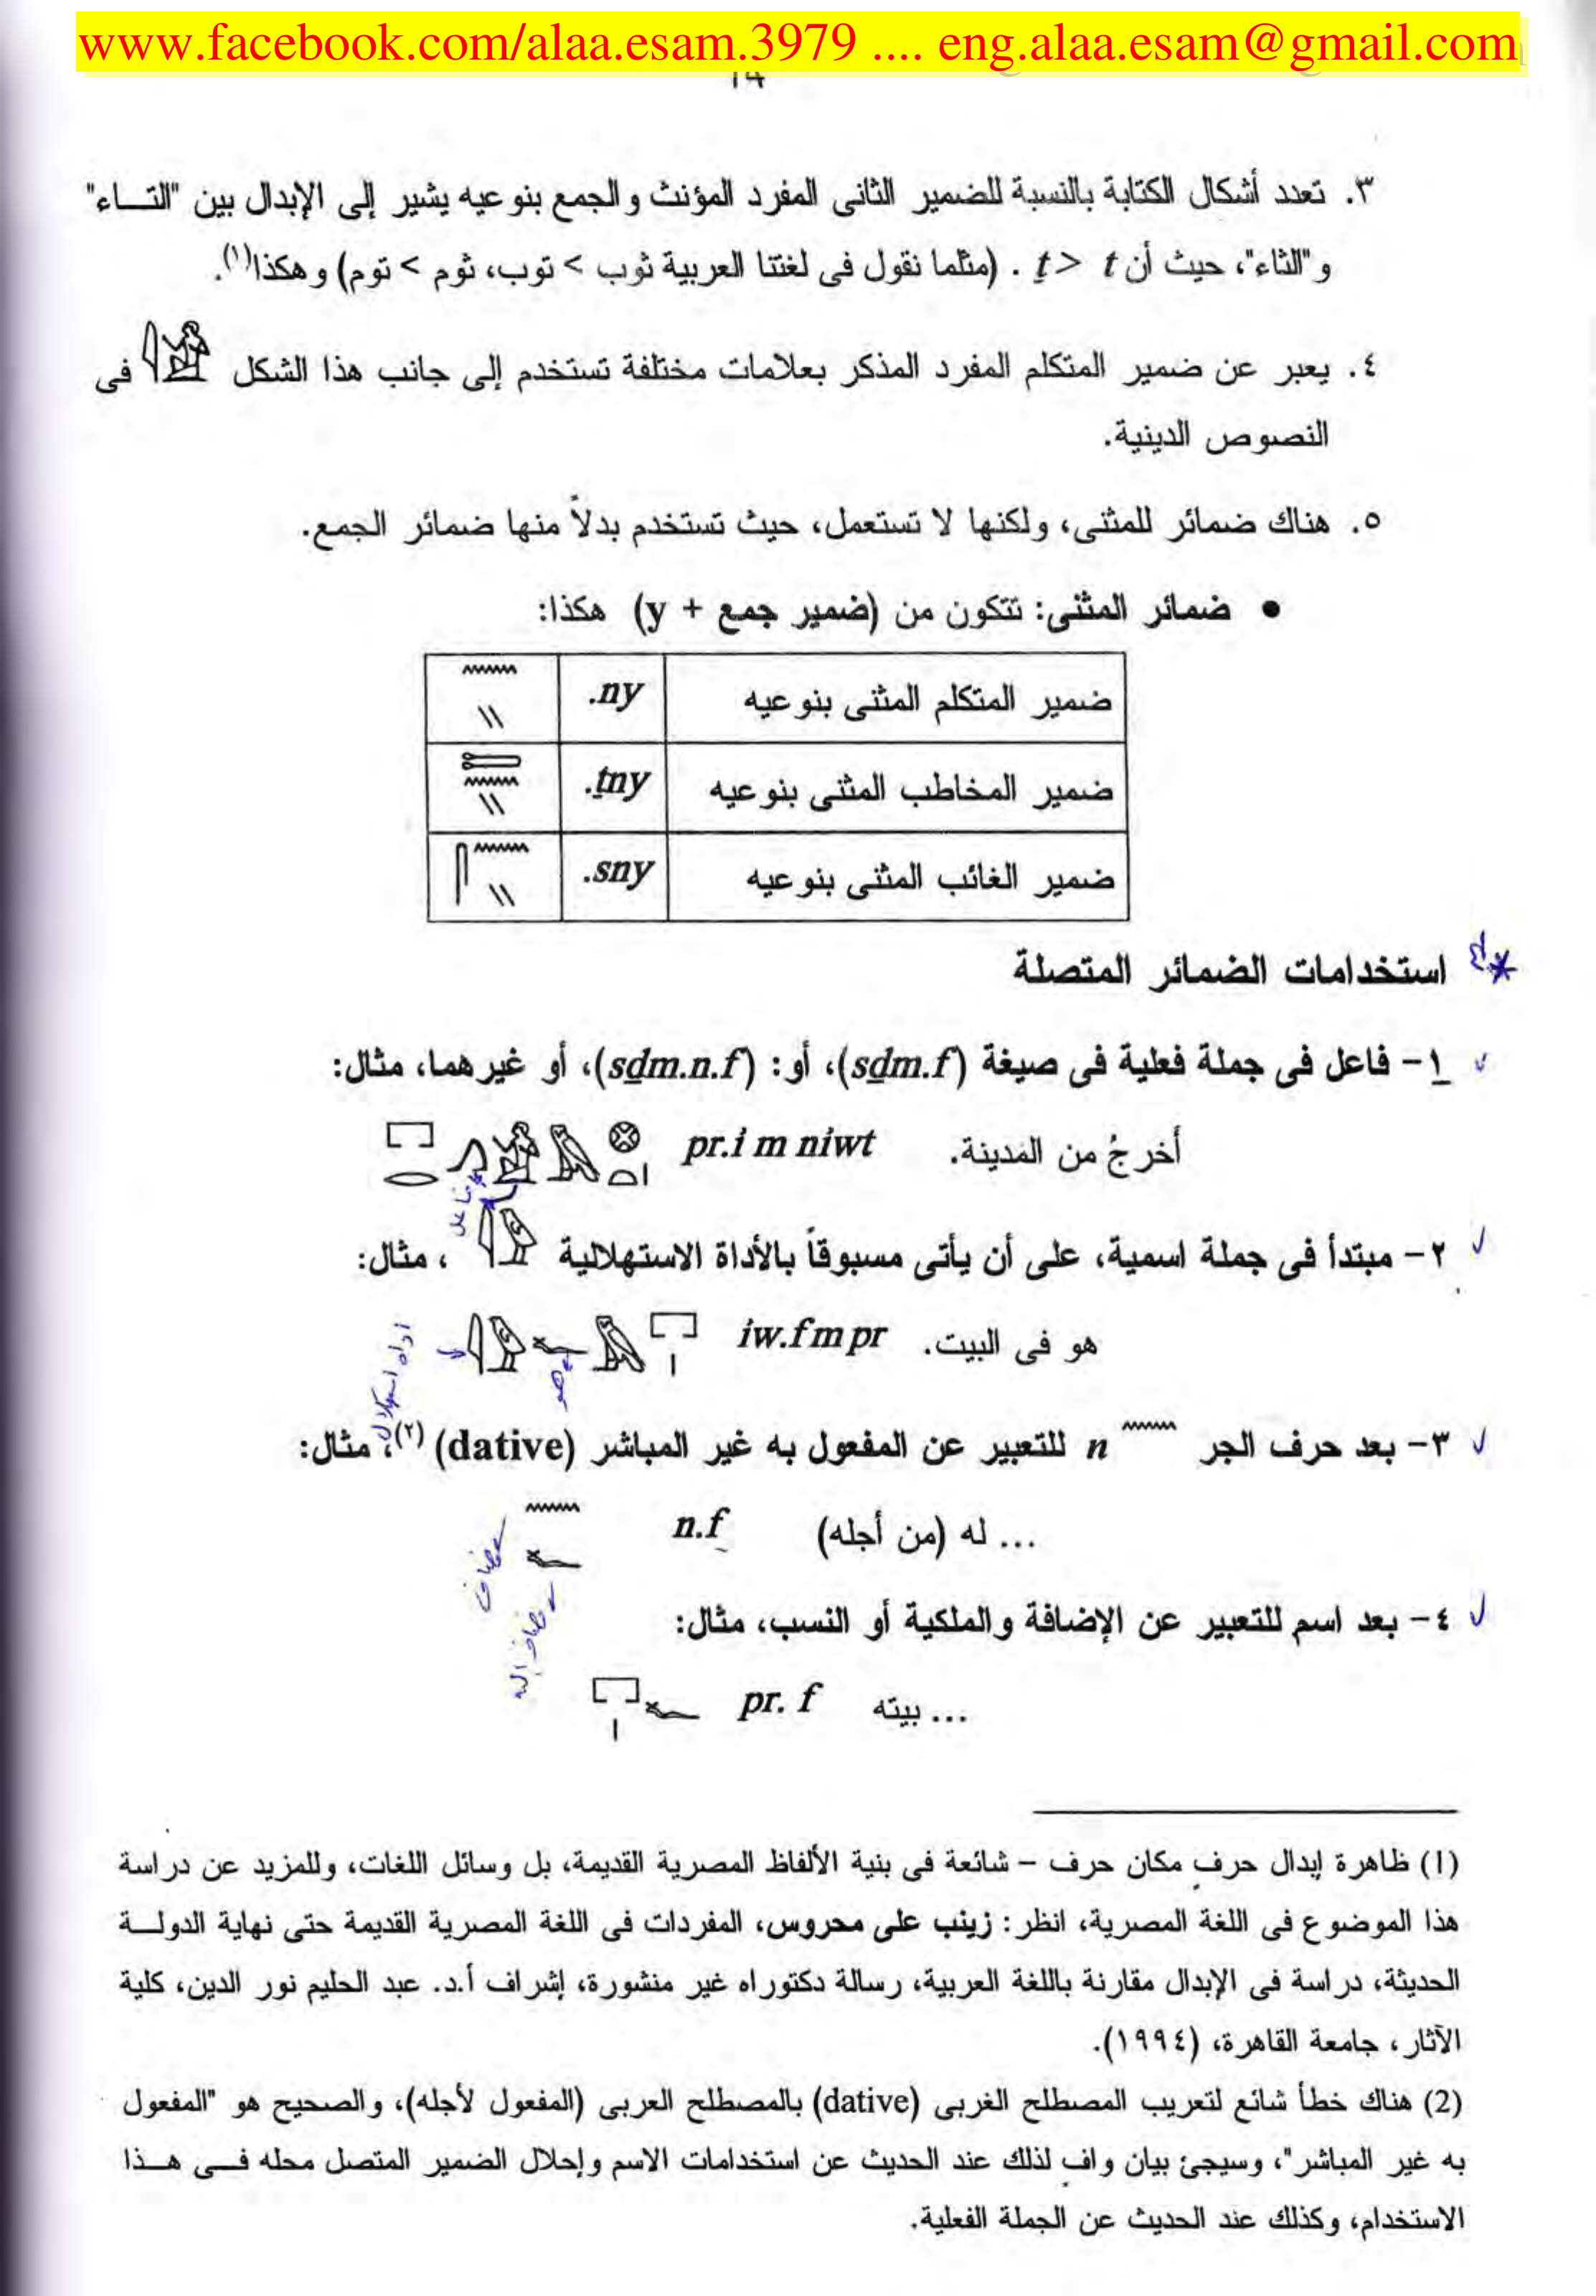 www.facebook.com/alaa.esam.3979 .... eng.alaa.esam@gmail.com
٣. تعدد أشكال الكتابة بالنسبة للضمير الثانى المفرد المؤنث والجمع بنوعيه يشير إلى الإبدال بين "التــاء"
و"الثاء"، حيث أن t < ṯ . (مثلما نقول فى لغتنا العربية ثوب > توب، ثوم > توم) وهكذا(١).
٤. يعبر عن ضمير المتكلم المفرد المذكر بعلامات مختلفة تستخدم إلى جانب هذا الشكل فى
النصوص الدينية.
٥. هناك ضمائر للمثنى، ولكنها لا تستعمل، حيث تستخدم بدلاً منها ضمائر الجمع.
• ضمائر المثنى: تتكون من (ضمير جمع + y) هكذا:
ضمير المتكلم المثنى بنوعيه .ny
ضمير المخاطب المثنى بنوعيه .ṯny
ضمير الغائب المثنى بنوعيه .sny
استخدامات الضمائر المتصلة
١- فاعل فى جملة فعلية فى صيغة (sḏm.f)، أو: (sḏm.n.f)، أو غيرهما، مثال:
أخرجُ من المدينة. pr.i m niwt
فاعل
٢- مبتدأ فى جملة اسمية، على أن يأتى مسبوقاً بالأداة الاستهلالية ، مثال:
هو فى البيت. iw.f m pr
هو
اداه استهلال
٣- بعد حرف الجر n للتعبير عن المفعول به غير المباشر (dative) (٢)، مثال:
... له (من أجله) n.f
مضاف
مضاف إليه
٤- بعد اسم للتعبير عن الإضافة والملكية أو النسب، مثال:
... بيته pr. f
(1) ظاهرة إبدال حرف مكان حرف – شائعة فى بنية الألفاظ المصرية القديمة، بل وسائل اللغات، وللمزيد عن دراسة
هذا الموضوع فى اللغة المصرية، انظر: زينب على محروس، المفردات فى اللغة المصرية القديمة حتى نهاية الدولــة
الحديثة، دراسة فى الإبدال مقارنة باللغة العربية، رسالة دكتوراه غير منشورة، إشراف أ.د. عبد الحليم نور الدين، كلية
الآثار، جامعة القاهرة، (١٩٩٤).
(2) هناك خطأ شائع لتعريب المصطلح الغربى (dative) بالمصطلح العربى (المفعول لأجله)، والصحيح هو "المفعول
به غير المباشر"، وسيجئ بيان وافٍ لذلك عند الحديث عن استخدامات الاسم وإحلال الضمير المتصل محله فــى هــذا
الاستخدام، وكذلك عند الحديث عن الجملة الفعلية.